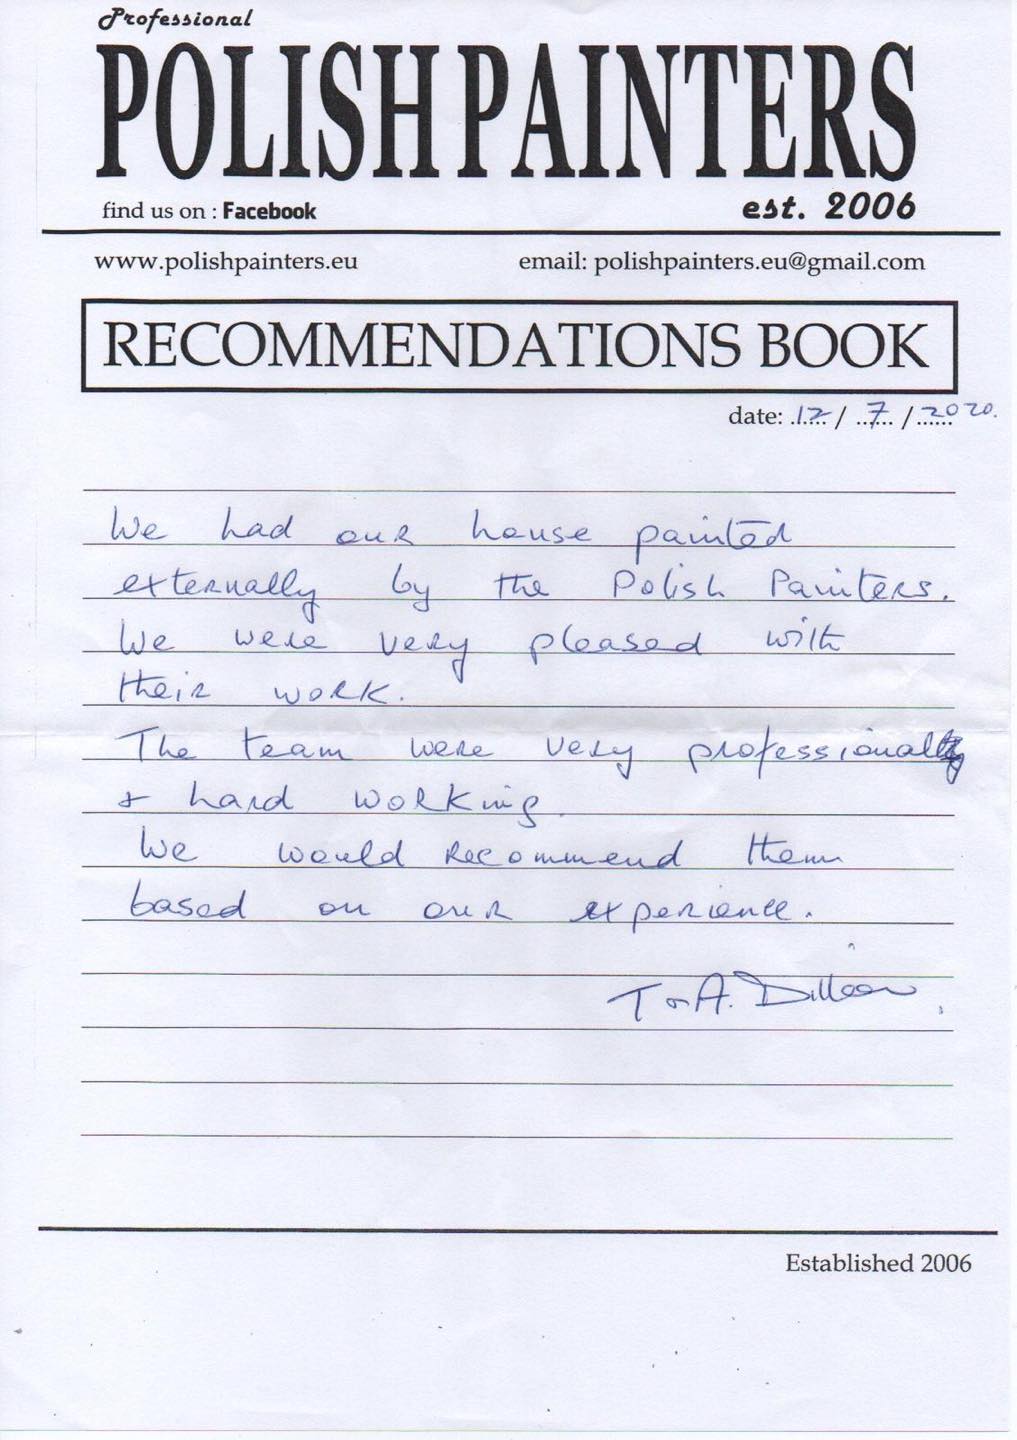 Professional
POLISH PAINTERS
find us on : Facebook est. 2006
www.polishpainters.eu email: polishpainters.eu@gmail.com
RECOMMENDATIONS BOOK
date: 12 / 7 / 2020.
We had our house painted
externally by the Polish Painters.
We were very pleased with
their work.
The team were very professional
& hard working.
We would recommend them
based on our experience.
T & A. Dillon.
Established 2006